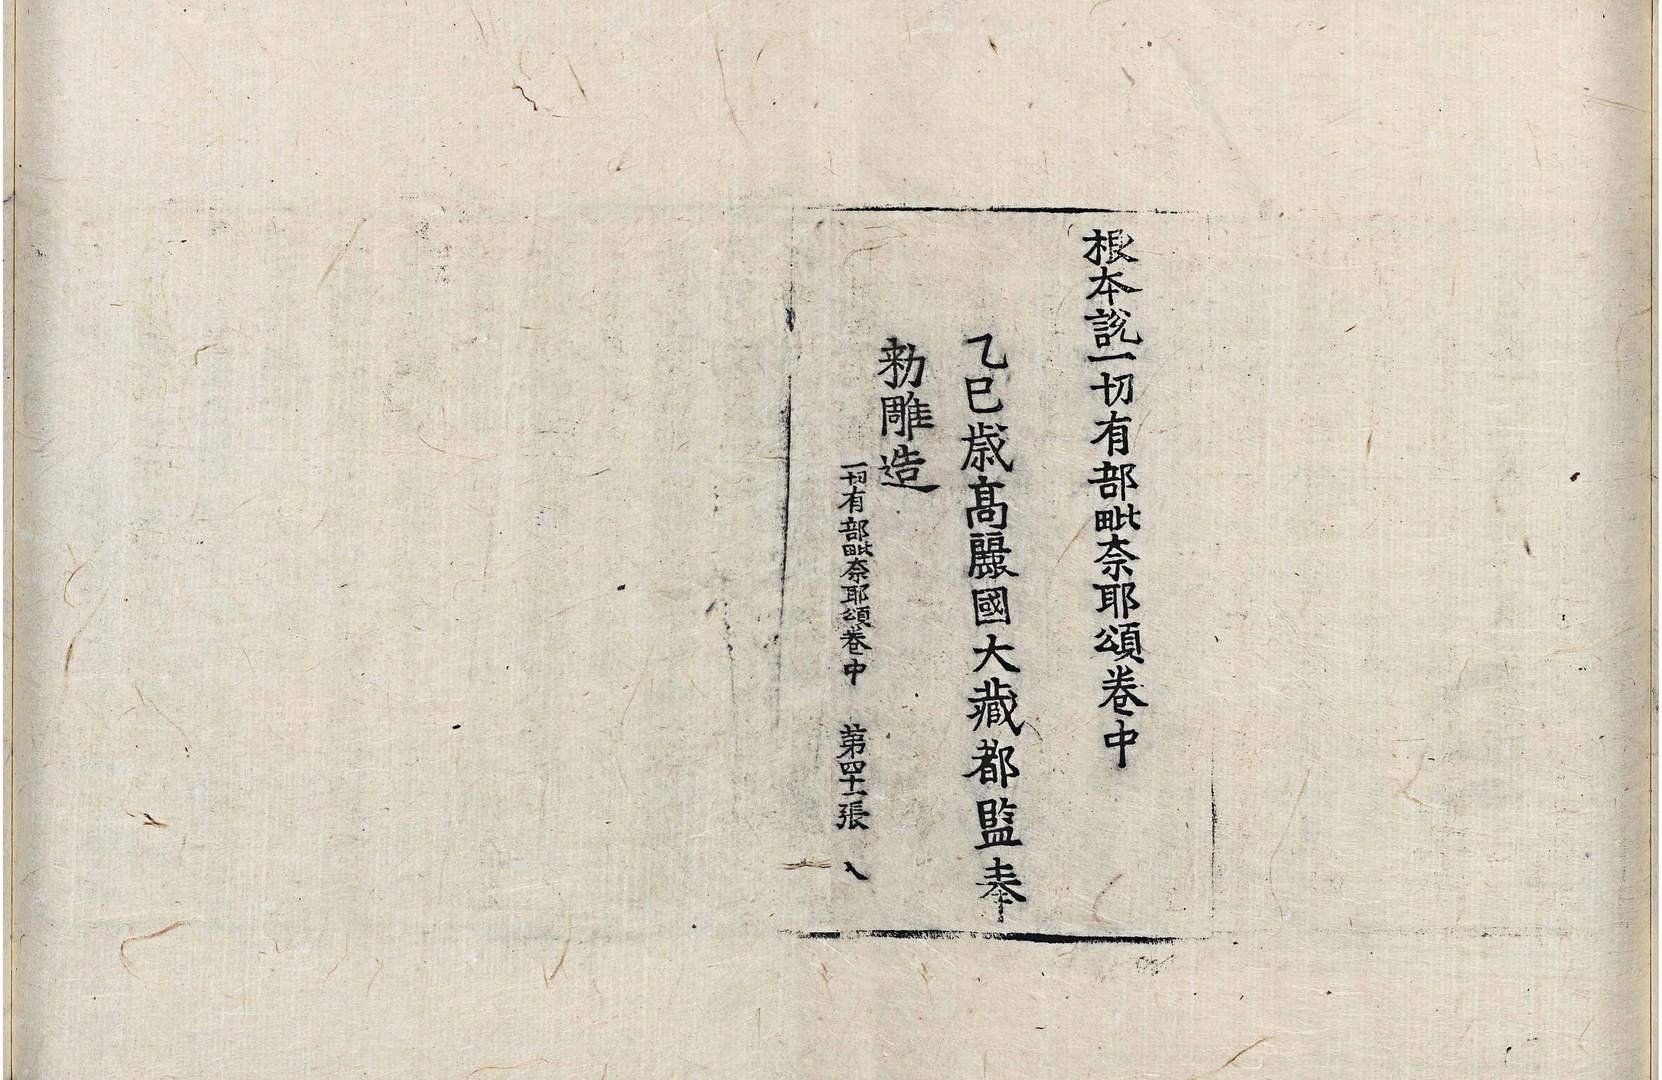 根本說一切有部毗奈耶頌卷中
乙巳歳髙麗國大藏都監奉
勑雕造
一切有部毗奈耶頌卷中　第四十一張　入